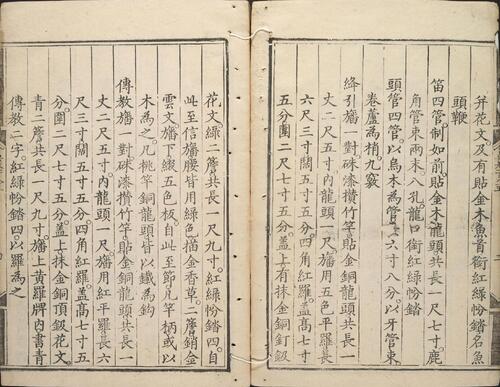 幷花文及有貼金木魚首銜紅綠帉錔名魚
頭鞭
笛四管制如前貼金木龍頭共長一尺七寸鹿
角管束兩末八孔龍口銜紅綠帉錔
頭管四管以烏木爲管長六寸八分以牙管束
卷蘆爲梢九竅
絳引旛一對硃漆攢竹竿貼金銅龍頭共長一
丈二尺五寸內龍頭一尺旛用五色平羅長
六尺三寸闊二尺五寸五分四角紅羅蓋高七寸
五分圍二尺七寸五分蓋上有抹金銅釘鈒
花文綠二簷共長一尺九寸紅綠帉錔四自
此至信旛腰皆用綠色描金香草二簷銷金
雲文旛下綴五色板自此至節凡竿柄或以
木爲之凡桃竿銅龍頭皆以鐵爲鈎
傳教旛一對硃漆攢竹竿貼金銅龍頭共長一
丈二尺五寸內龍頭一尺旛用紅平羅長六
尺三寸闊二尺五寸五分四角紅羅蓋高七寸五
分圍二尺七寸五分蓋上抹金銅頂鈒花文
青二簷共長一尺九寸旛上黃羅牌內書青
傳教二字紅綠帉錔四以羅爲之